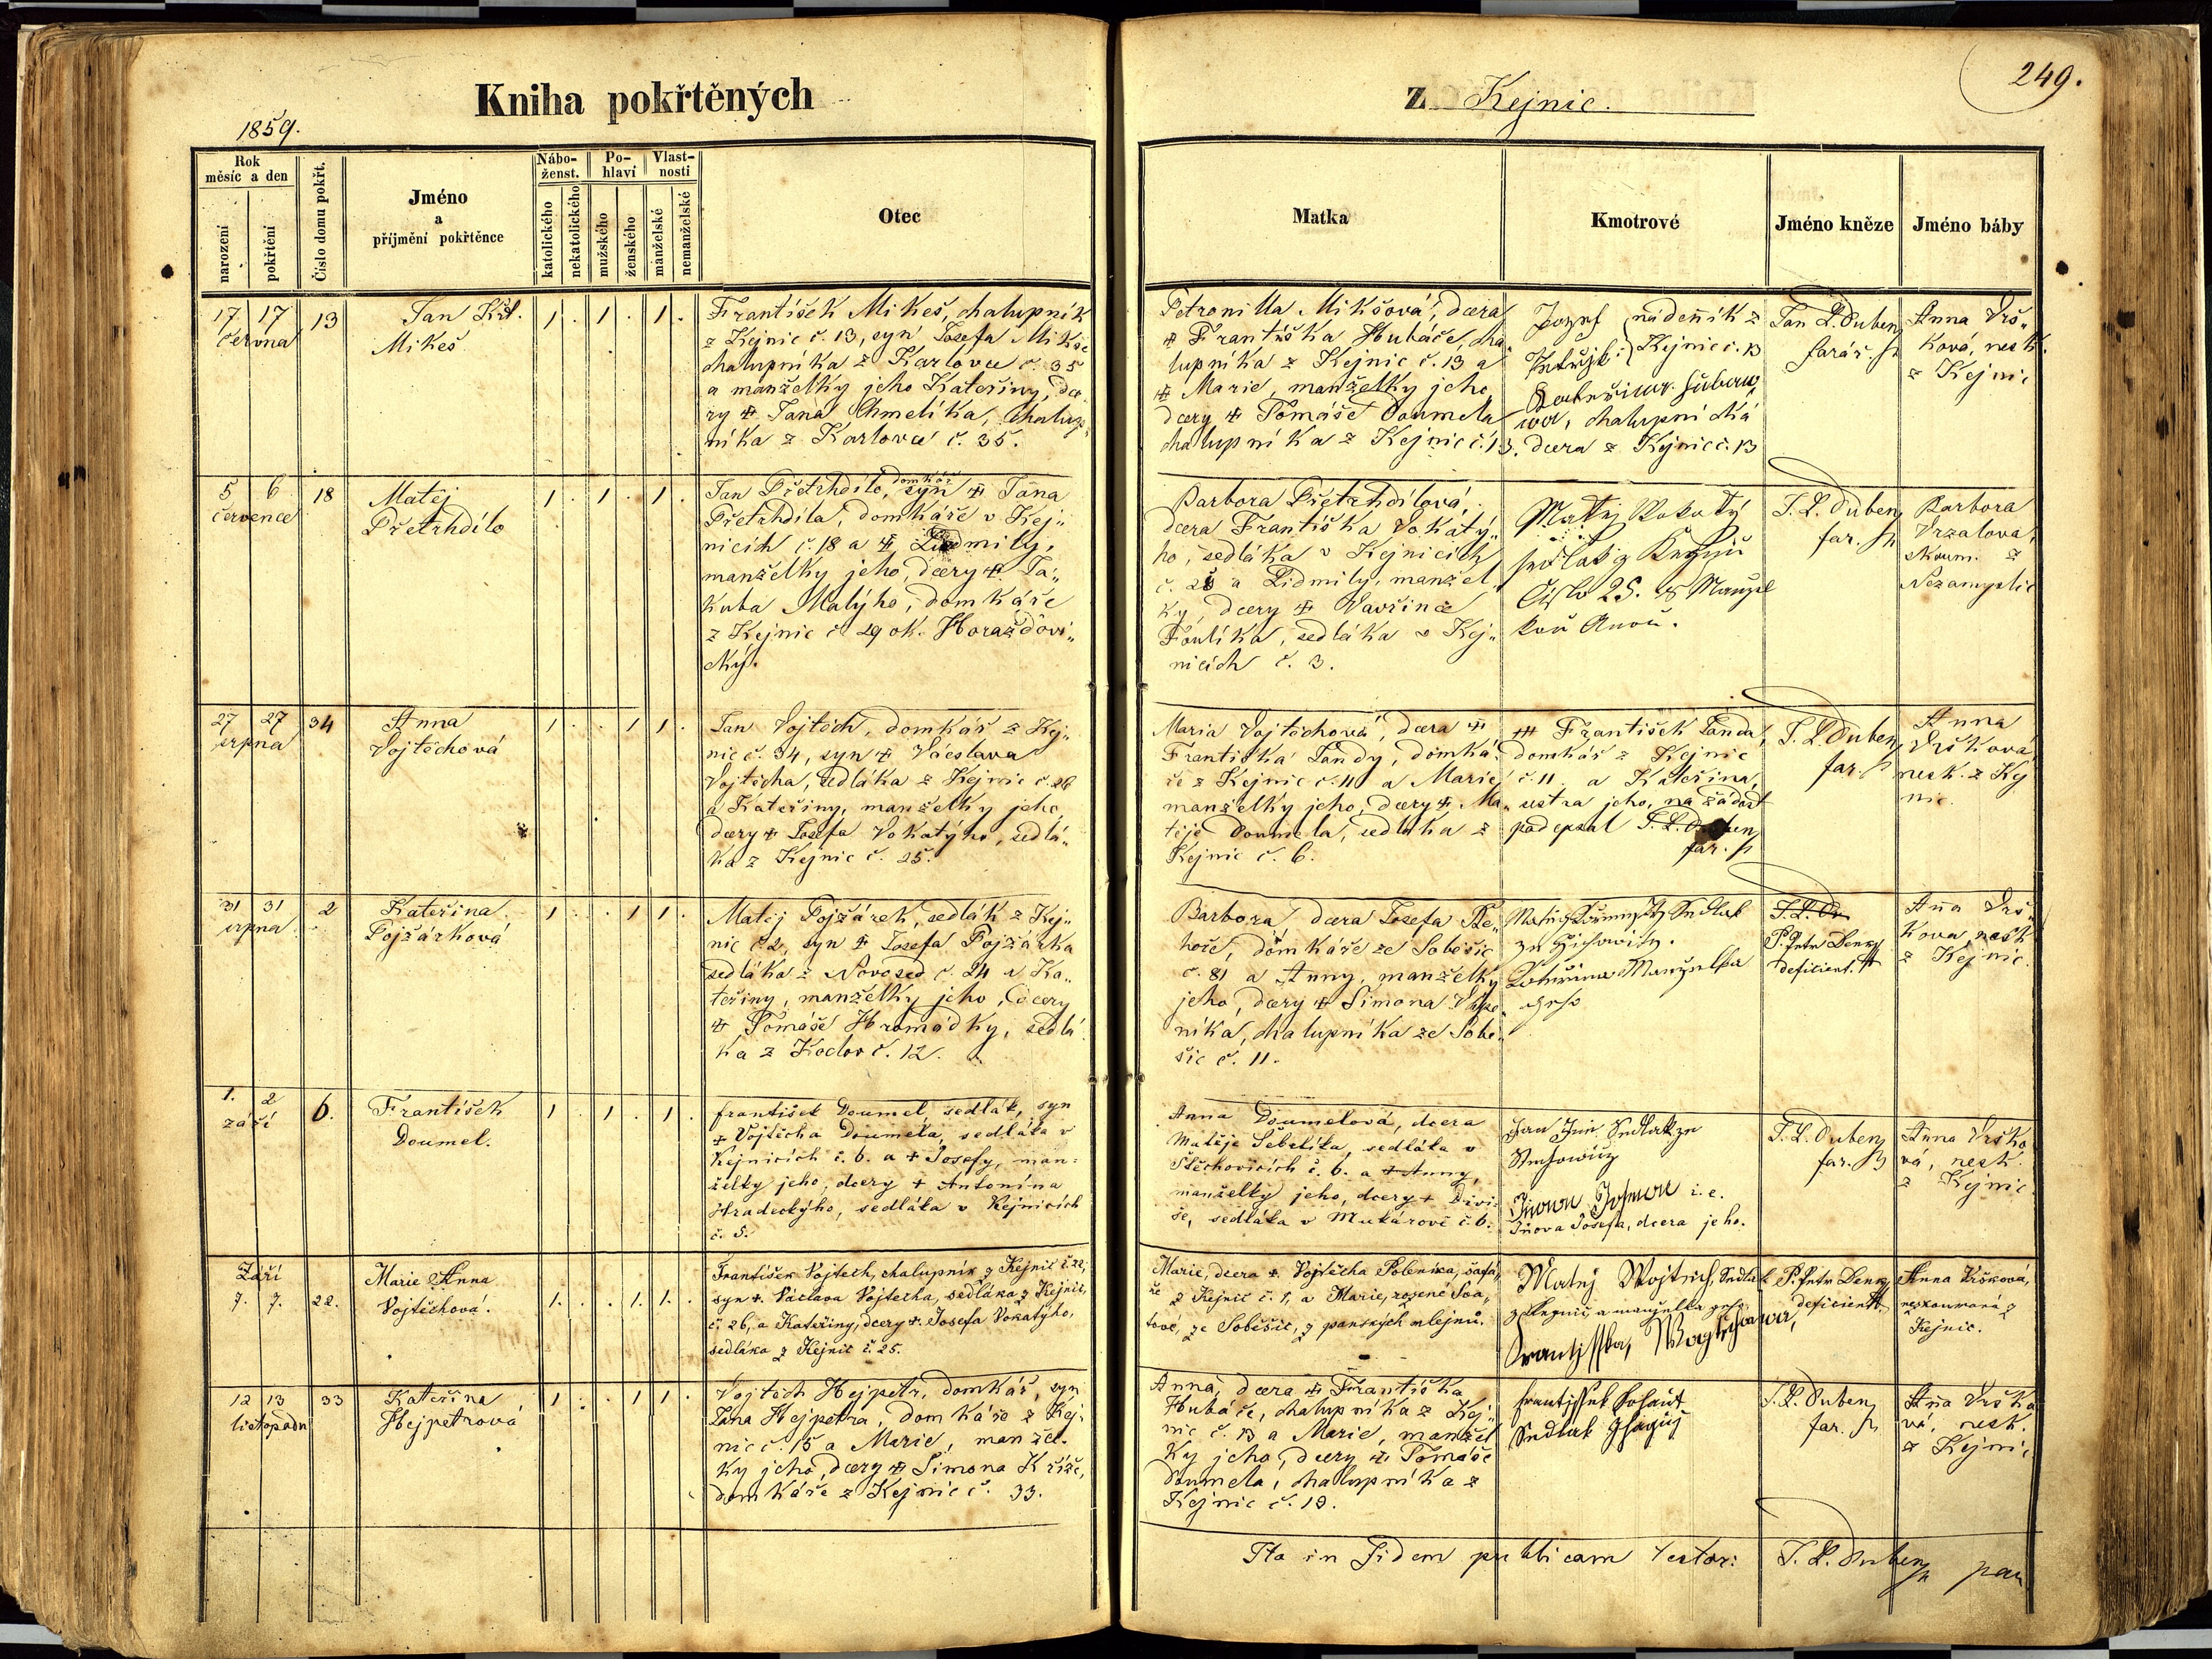 Kniha pokřtěných
z Kejnic.
249.
1859.
Rok
měsíc a den
narození
pokřtění
Číslo domu pokřt.
Jméno
a
příjmění pokřtěnce
Nábo-
ženst.
katolického
nekatolického
Po-
hlaví
mužského
ženského
Vlast-
nosti
manželské
nemanželské
Otec
Matka
Kmotrové
Jméno kněze
Jméno báby
17 17
června
13
Jan Křt.
Mikeš
1 . 1 . 1 .
František Mikeš, chalupník
z Kejnic č. 13, syn Josefa Mikše
chalupníka z Karlova č. 35
a manželky jeho Kateřiny, dce
ry ‡ Jana Chmelíka, chalup„
níka z Karlova č. 35.
Petronilla Mikšová, dcera
‡ Františka Hubáče, cha
lupníka z Kejnic č. 13 a
‡ Marie, manželky jeho,
dcery ‡ Tomáše Doumela
chalupníka z Kejnic č. 13.
Jozef nádeník z
Kejnic č. 13
chalupnická
dcera z Kejnic č. 13
Jan L. Duben
farář.
Anna Vrš„
ková, nesk.
z Kejnic
5 6
července
18
Matěj
Přetrhdílo
1 . 1 . 1 .
Jan Přetrhdílo, domkář syn ‡ Jana
Přetrhdíla, domkáře v Kej„
nicích č. 18 a ‡ Lidmily,
manželky jeho, dcery ‡ Ja„
kuba Malýho, domkáře
z Kejnic č. 29 ok. Horažďovi„
cký.
Barbora Přetrhdílová,
dcera Františka Vokatý„
ho, sedláka v Kejnicích
č. 25 a Lidmily, manžel
ky, dcery ‡ Vavřince
Foulíka, sedláka v Kej„
nicích č. 3.
Matěj Wokatý
sedlák z Kegnic
Číslo 25. s Manžel
kou Anou.
J. L. Duben
far.
Barbora
Vrzalova,
zkoum. z
Nezamyslic
27 27
srpna
34
Anna
Vojtěchová
1 . . 1 1 .
Jan Vojtěch, domkář z Kej„
nic č. 34, syn ‡ Václava
Vojtěcha, sedláka z Kejnic č. 26
a Kateřiny, manželky jeho,
dcery ‡ Josefa Vokatýho, sedlá„
ka z Kejnic č. 25.
Maria Vojtěchová, dcera ‡
Františka Jandy, domká„
ře z Kejnic č. 11 a Marie
manželky jeho, dcery ‡ Ma„
těje Doumela, sedláka z
Kejnic č. 6.
‡‡ František Janda,
domkář z Kejnic
č. 11 a Kateřina,
sestra jeho, na žádost
podepsal J. L. Duben
far.
J. L. Duben
far.
Anna
Vršková
nesk. z Kej
nic.
31 31
srpna
2
Kateřina
Pojžárková
1 . . 1 1 .
Matěj Pojžárek, sedlák z Kej„
nic č. 2, syn ‡ Josefa Pojžárka
sedláka z Novosed č. 24 a Ka„
teřiny, manželky jeho, dcery
‡ Tomáše Hromádky, sedlá„
ka z Kadov č. 12.
Barbora, dcera Josefa Ře„
hoře, domkáře ze Soběšic
č. 81 a Anny, manželky
jeho, dcery ‡ Šimona Vápe„
níka, chalupníka ze Sobě„
šic č. 11.
Sedlak
Manželka
geho
J. L. Du
P. Petr Benz
deficient.
Aňa Vrš„
kova, nesk
z Kejnic.
1. 2
září
6.
František
Doumel.
1 . 1 . 1 .
František Doumel, sedlák, syn
+ Vojtěcha Doumela, sedláka v
Kejnicích č. 6. a + Josefy, man=
želky jeho, dcery + Antonína
Hradeckýho, sedláka v Kejnicích
č. 5.
Anna Doumelová, dcera
Matěje Šebelíka, sedláka v
Stěchovicích č. 6. a + Anny,
manželky jeho, dcery + Divi=
še, sedláka v Mukařově č. 6.
Jan Jün Sedlak ze
i. e.
Jinova Josefa, dcera jeho.
J. L. Duben
far.
Aňna Vrško
vá, nesk.
z Kejnic
Září
7. 7.
22.
Marie Anna
Vojtěchová.
1. . . 1. 1. .
František Vojtech, chalupník z Kejnic č. 22,
syn +. Václava Vojtecha, sedláka z Kejnic,
č. 26, a Kateřiny, dcery +. Josefa Vokatýho,
sedláka z Kejnic č. 25.
Marie, dcera +. Vojtěcha Poleníka, šafá„
ře z Kejnic č. 1, a Marie, rozené Sva„
tové, ze Soběšic, z panských mlejnů.
Matěj Wojtěch, Sedlak
z Kegnic, a manželka geho
Frantjsska, Wogtěchowa,
P. Petr Benz
deficient
Anna Vršková,
neskoumaná z
Kejnic.
12 13
listopadu
33
Kateřina
Hejpetrová
1 . . 1 1 .
Vojtěch Hejpetr, domkář, syn
Jana Hejpetra, domkáře z Kej„
nic č. 15 a Marie, manžel„
ky jeho, dcery ‡ Šimona Kříže,
domkáře z Kejnic č. 33.
Anna, dcera ‡ Františka
Hubače, chalupníka z Kej„
nic č. 13 a Marie, manžel
ky jeho, dcery ‡ Tomáše
Doumela, chalupníka z
Kejnic č. 13.
Frantjssek
Sedlak
J. L. Duben
far.
Aňa Vrško
vá, nesk.
z Kejnic
Ita in Fidem publicam testor: J. L. Duben